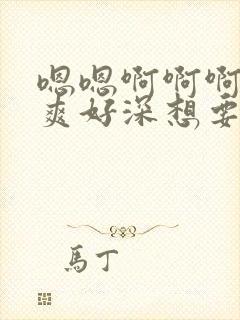 嗯嗯啊啊啊
爽好深想要
馬丁